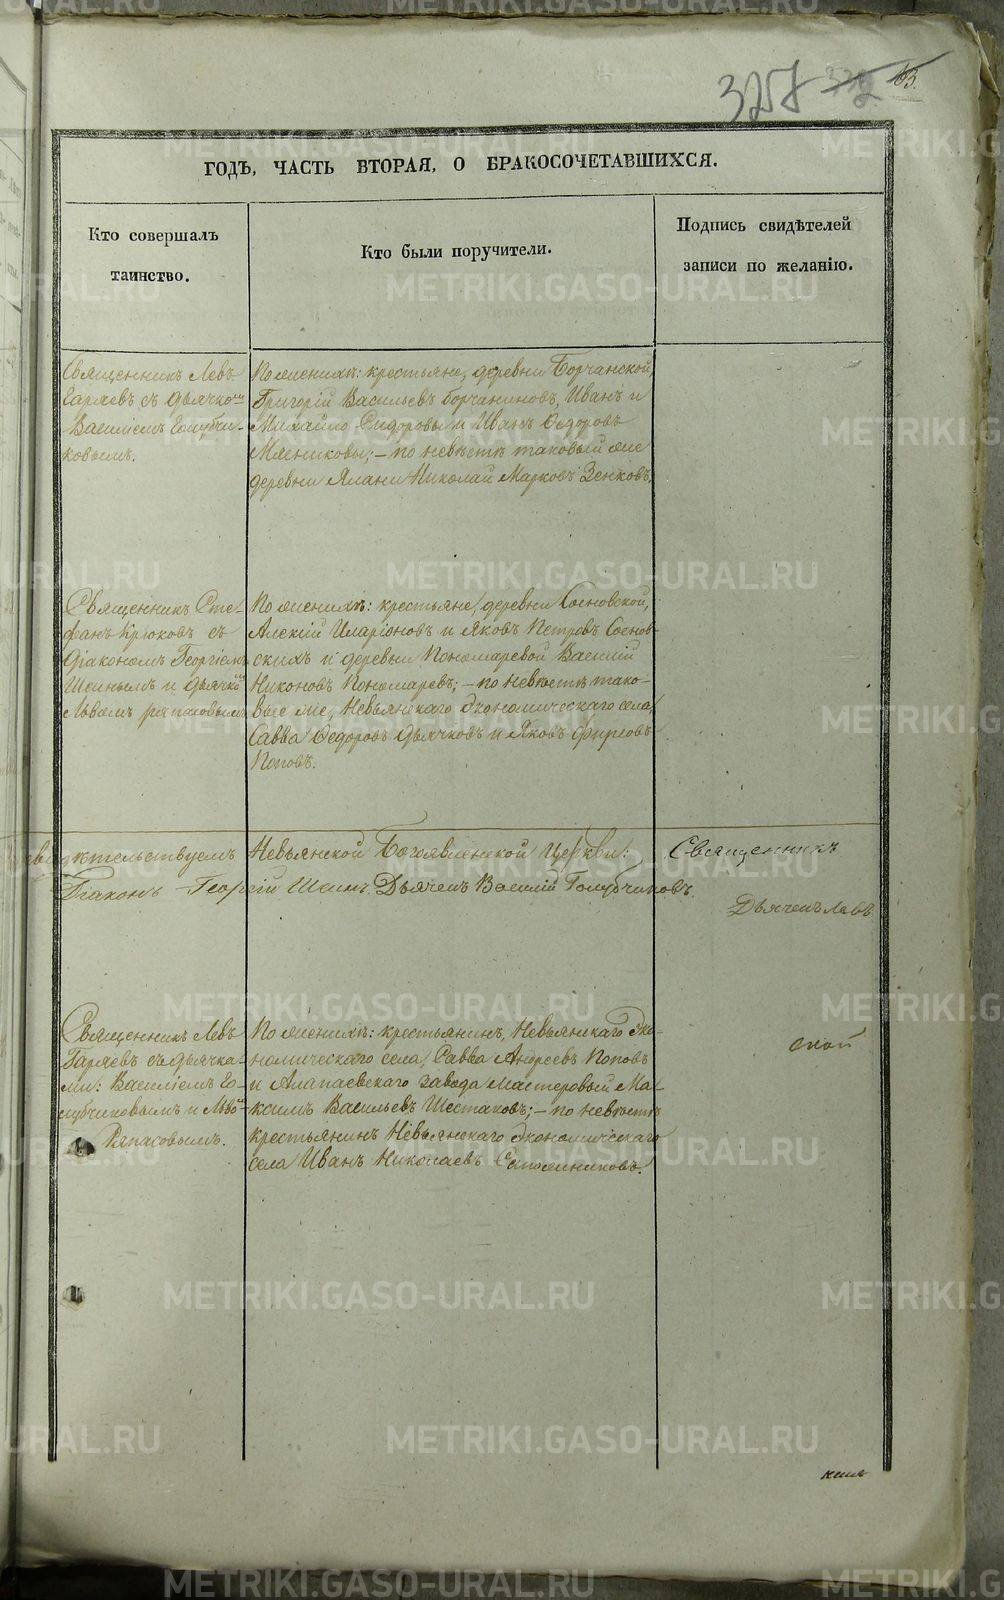 3258 63.
ГОДЪ, ЧАСТЬ ВТОРАЯ, О БРАКОСОЧЕТАВШИХСЯ.
Кто совершалъ
таинство.
Кто были поручители.
Подпись свидѣтелей
записи по желанію.
Священникъ Левъ
Гаряевъ съ дьячкомъ
Василіемъ Голубчи-
ковымъ.
По женихѣ: крестьяне, деревни Борчанской,
Григорій Васильевъ Борчаниновъ, Иванъ и
Михайло Сидоровы и Иванъ Ѳедоровъ
Мясниковы; – по невѣстѣ таковый же
деревни Ялани Николай Марковъ Зенковъ.
Священникъ Сте-
фанъ Крюковъ съ
Діакономъ Георгіемъ
Шеинымъ и дьячкомъ
Львомъ Ряпасовымъ
По женихѣ: крестьяне, деревни Сосновской,
Алексій Иларіоновъ и Яковъ Петровъ Соснов-
скихъ и деревни Пономаревой Василій
Никоновъ Пономаревъ; – по невѣстѣ тако-
вые же, Невьянскаго Экономическаго села,
Савва Ѳедоровъ Дьячковъ и Яковъ Фирсовъ
Поповъ.
Невьянской Богоявленской Церкви: Священникъ
Діаконъ Георгій Шеинъ Дьячекъ Василій Голубчиковъ.
Дьячекъ Левъ
Священникъ Левъ
Гаряевъ съ дьячка-
ми: Василіемъ Го-
лубчиковымъ и Львомъ
Ряпасовымъ.
По женихѣ: крестьянинъ, Невьянскаго Эко-
номическаго села, Савва Андреевъ Поповъ
и Алапаевскаго завода мастеровый Ма-
ксимъ Васильевъ Шестаковъ; – по невѣстѣ
крестьянинъ Невьянскаго Экономическаго
села Иванъ Николаевъ
ской
METRIKI.GASO-URAL.RU